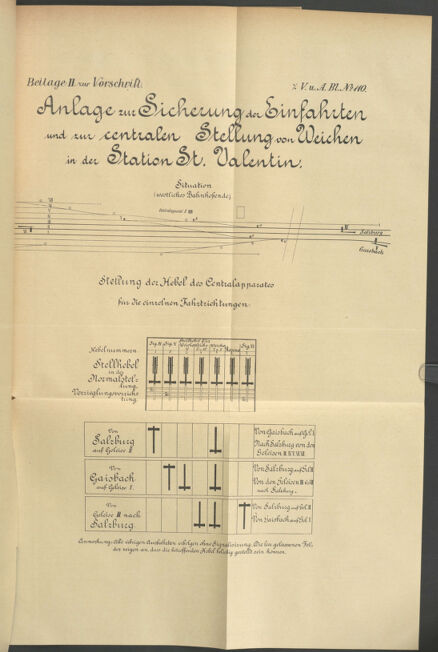 Beilage II zur Vorschrift.
z V. u. A. Bl. № 110.
Anlage zur Sicherung der Einfahrten
und zur centralen Stellung von Weichen
in der Station St. Valentin.
Situation
(westliches Bahnhofende)
Salzburg
Gaisbach
Stellung der Hebel des Centralapparates
für die einzelnen Fahrtrichtungen.
Hebelnummern
Stellhebel
in der
Normalstel-
lung.
Von
Salzburg
auf Geleise I
Von Gaisbach auf Gel. I
Nach Salzburg von den
Geleisen
Von
Gaisbach
auf Geleise I.
Von Salzburg auf Gel.
Von den Geleisen
nach Salzburg.
Von
Geleise III nach
Salzburg.
Von Salzburg auf Gel.
Von Gaisbach auf Gel. I
Anmerkung: Alle übrigen Ausfahrten erfolgen ohne Signalisirung. Die leer gelassenen Fel-
der zeigen an, dass die betreffenden Hebel beliebig gestellt sein können.